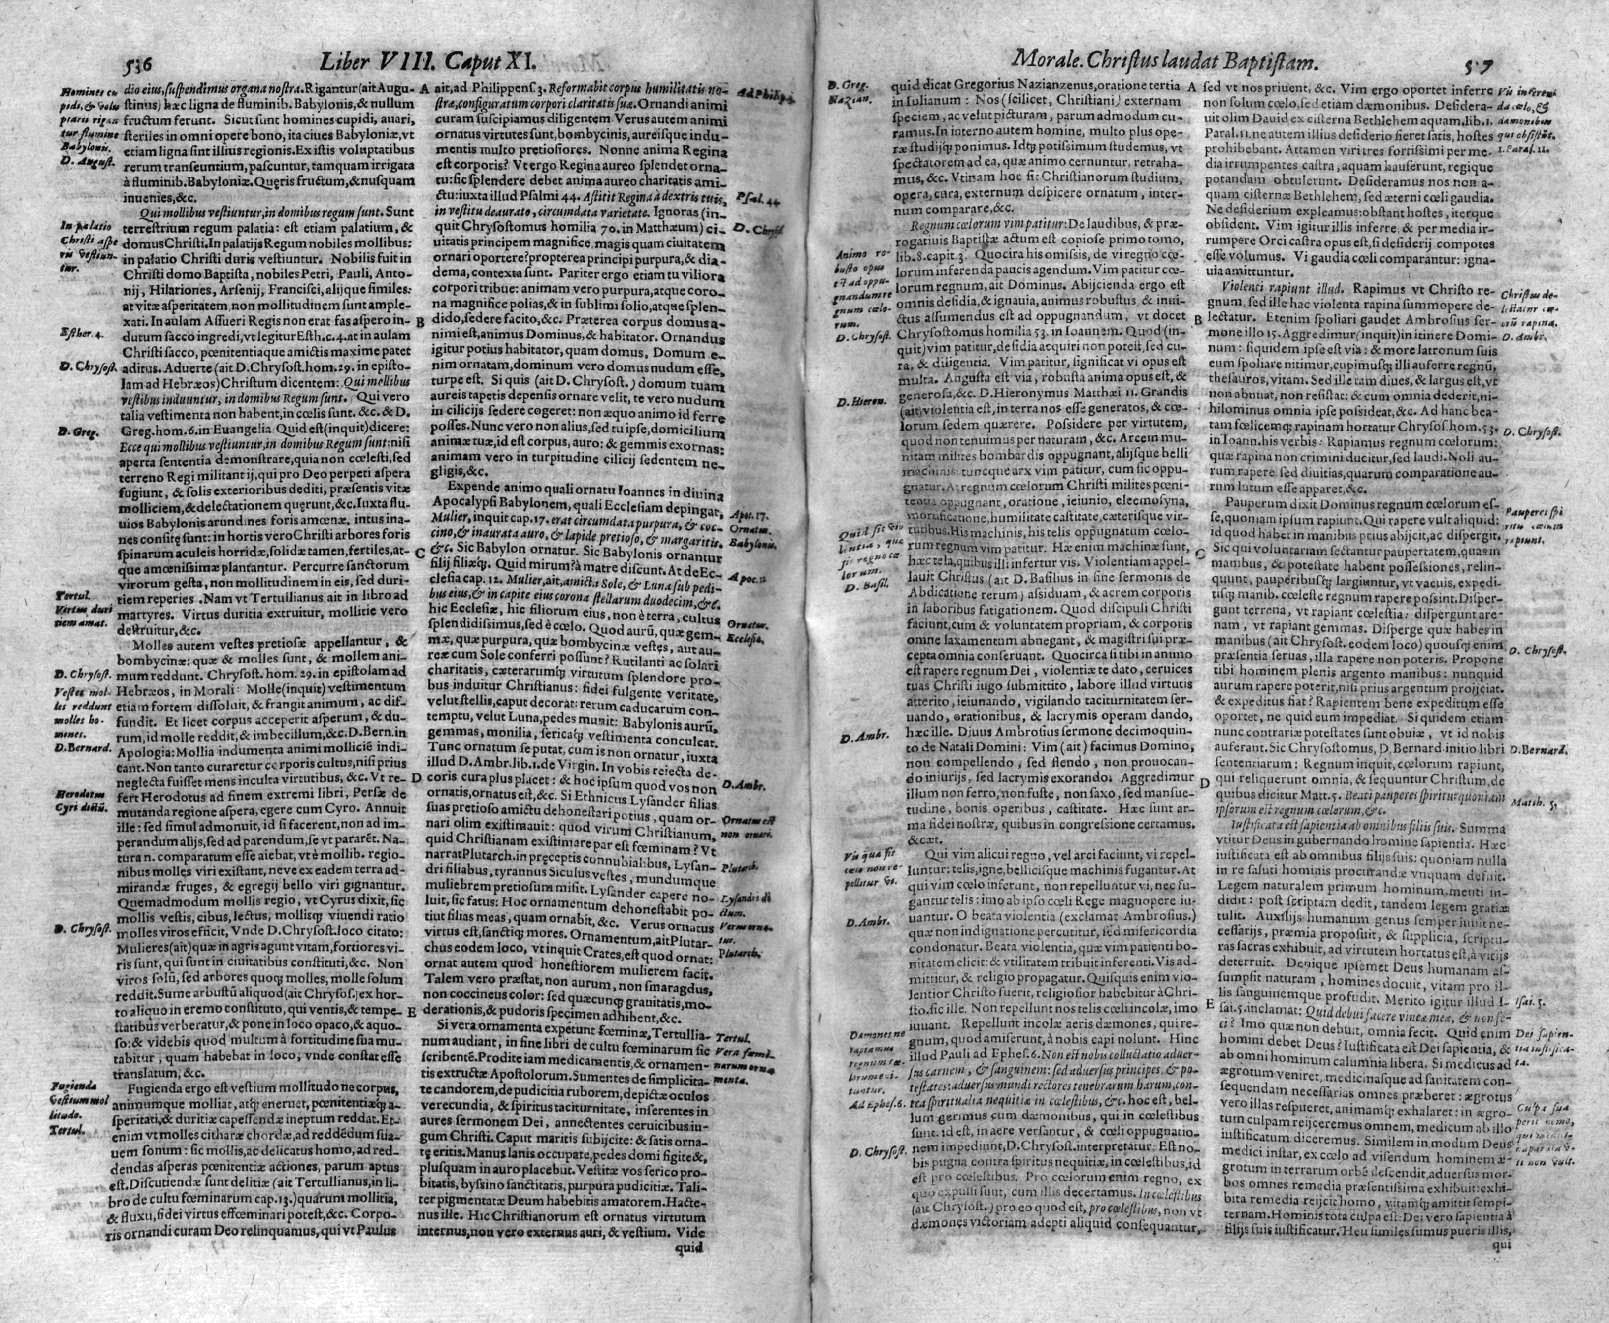 536
Liber VIII. Caput XI.
dio eius, suspendimus organa nostra. Rigantur (ait Augu-
stinus) hæc ligna de fluminib. Babylonis, & nullum
fructum ferunt. Sicut sunt homines cupidi, auari,
steriles in omni opere bono, ita ciues Babyloniæ, vt
etiam ligna sint illius regionis. Ex istis voluptatibus
rerum transeuntium, pascuntur, tamquam irrigata
à fluminib. Babyloniæ. Quęris fructum, & nusquam
inuenies, &c.
Qui mollibus vestiuntur, in domibus regum sunt. Sunt
terrestrium regum palatia: est etiam palatium, &
domus Christi. In palatijs Regum nobiles mollibus:
in palatio Christi duris vestiuntur. Nobilis fuit in
Christi domo Baptista, nobiles Petri, Pauli, Anto-
nij, Hilariones, Arsenij, Francisci, alijque similes:
at vitæ asperitatem non mollitudinem sunt ample-
xati. In aulam Assueri Regis non erat fas aspero in-
dutum sacco ingredi, vt legitur Esth. c. 4. at in aulam
Christi sacco, pœnitentiæque amictis maxime patet
aditus. Aduerte (ait D. Chrysost. hom. 29. in episto-
lam ad Hebræos) Christum dicentem: Qui mollibus
vestibus induuntur, in domibus Regum sunt. Qui vero
talia vestimenta non habent, in cœlis sunt. &c. & D.
Greg. hom. 6. in Euangelia Quid est (inquit) dicere:
Ecce qui mollibus vestiuntur, in domibus Regum sunt: nisi
aperta sententia demonstrare, quia non cœlesti, sed
terreno Regi militant ij, qui pro Deo perpeti aspera
fugiunt, & solis exterioribus dediti, præsentis vitæ
molliciem, & delectationem quęrunt, &c. Iuxta flu-
uios Babylonis arundines foris amœnæ, intus ina-
nes consitę sunt: in hortis vero Christi arbores foris
spinarum aculeis horridæ, solidæ tamen, fertiles, at-
que amœnissimæ plantantur. Percurre sanctorum
virorum gesta, non mollitudinem in eis, sed duri-
tiem reperies. Nam vt Tertullianus ait in libro ad
martyres. Virtus duritia extruitur, mollitie vero
destruitur, &c.
Molles autem vestes pretiosæ appellantur, &
bombycinæ: quæ & molles sunt, & mollem ani-
mum reddunt. Chrysost. hom. 29. in epistolam ad
Hebræos, in Morali: Molle (inquit) vestimentum
etiam fortem dissoluit, & frangit animum, ac dif-
fundit. Et licet corpus acceperit asperum, & du-
rum, id molle reddit, & imbecillum, &c. D. Bern. in
Apologia: Mollia indumenta animi mollicié indi-
cant. Non tanto curaretur corporis cultus, nisi prius
neglecta fuisset mens inculta virtutibus, &c. Vt re-
fert Herodotus ad finem extremi libri, Persæ de
mutanda regione aspera, egere cum Cyro. Annuit
ille: sed simul admonuit, id si facerent, non ad im-
perandum alijs, sed ad parendum, se vt pararét. Na-
tura n. comparatum esse aiebat, vt è mollib. regio-
nibus molles viri existant, neve ex eadem terra ad-
mirandæ fruges, & egregij bello viri gignantur.
Quemadmodum mollis regio, vt Cyrus dixit, sic
mollis vestis, cibus, lectus, mollisq; viuendi ratio
molles viros efficit, Vnde D. Chrysost. loco citato:
Mulieres (ait) quæ in agris agunt vitam, fortiores vi-
ris sunt, qui sunt in ciuitatibus constituti, &c. Non
viros solū, sed arbores quoq; molles, molle solum
reddit. Sume arbustū aliquod (ait Chrysos.) ex hor-
to aliquo in eremo constituto, qui ventis, & tempe-
statibus verberatur, & pone in loco opaco, & aquo-
so: & videbis quod multum à fortitudine sua mu-
tabitur, quam habebat in loco, vnde constat esse
translatum, &c.
Fugienda ergo est vestium mollitudo ne corpus,
animumque molliat, atq; eneruet, pœnitentiæq; a-
speritati, & duritiæ capessendæ ineptum reddat. Et-
enim vt molles citharæ chordæ, ad reddédum sua-
uem sonum: sic mollis, ac delicatus homo, ad red-
dendas asperas pœnitentiæ actiones, parum aptus
est. Discutiendæ sunt delitiæ (ait Tertullianus, in li-
bro de cultu fœminarum cap. 13.) quarum mollitia,
& fluxu, fidei virtus effœminari potest, &c. Corpo-
ris ornandi curam Deo relinquamus, qui vt Paulus
Homines cu
pidi, & volu
ptarij rigan
tur flumine
Babylonis.
D. August.
In palatio
Christi aspe
ra vestiun-
tur.
Esther. 4.
D. Chrysost.
D. Greg.
Tertul.
Virtus duri
tiem amat.
D. Chrysost.
Vestes mol-
les reddunt
molles ho-
mines.
D. Bernard.
Herodotus
Cyri dictū.
D. Chrysost.
Fugienda
vestium mol
litudo.
Tertul.
A
B
C
D
E
ait, ad Philippens. 3. Reformabit corpus humilitatis no-
stræ, configuratum corpori claritatis suæ. Ornandi animi
curam suscipiamus diligentem Verus autem animi
ornatus virtutes sunt, bombycinis, aureisque indu-
mentis multo pretiosiores. Nonne anima Regina
est corporis? Vt ergo Regina aureo splendet orna-
tu: sic splendere debet anima aureo charitatis ami-
ctu: iuxta illud Psalmi 44. Astitit Regina à dextris tuis,
in vestitu deaurato, circumdata varietate. Ignoras (in-
quit Chrysostomus homilia 70. in Matthæum) ci-
uitatis principem magnifice, magis quam ciuitatem
ornari oportere? propterea principi purpura, & dia-
dema, contexta sunt. Pariter ergo etiam tu viliora
corpori tribue: animam vero purpura, atque coro-
na magnifice polias, & in sublimi solio, atque splen-
dido, sedere facito, &c. Præterea corpus domus a-
nimi est, animus Dominus, & habitator. Ornandus
igitur potius habitator, quam domus. Domum e-
nim ornatam, dominum vero domus nudum esse,
turpe est. Si quis (ait D. Chrysost.) domum tuam
aureis tapetis depensis ornare velit, te vero nudum
in cilicijs sedere cogeret: non æquo animo id ferre
posses. Nunc vero non alius, sed tu ipse, domicilium
animæ tuæ, id est corpus, auro: & gemmis exornas:
animam vero in turpitudine cilicij sedentem ne-
gligis, &c.
Expende animo quali ornatu Ioannes in diuina
Apocalypsi Babylonem, quali Ecclesiam depingat.
Mulier, inquit cap. 17. erat circumdata purpura, & coc-
cino, & inaurata auro, & lapide pretioso, & margaritis.
&c. Sic Babylon ornatur. Sic Babylonis ornantur
filij filiæq;. Quid mirum? à matre discunt. At de Ec-
clesia cap. 12. Mulier, ait, amicta Sole, & Luna sub pedi-
bus eius, & in capite eius corona stellarum duodecim, &c.
hic Ecclesiæ, hic filiorum eius, non è terra, cultus
splendidissimus, sed è cœlo. Quod aurū, quæ gem-
mæ, quæ purpura, quæ bombycinæ vestes, aut au-
reæ cum Sole conferri possunt? Rutilanti ac solari
charitatis, cæterarumq; virtutum splendore pro-
bus induitur Christianus: fidei fulgente veritate,
velut stellis, caput decorat: rerum caducarum con-
temptu, velut Luna, pedes munit: Babylonis aurū,
gemmas, monilia, sericaq; vestimenta conculcat.
Tunc ornatum se putat, cum is non ornatur, iuxta
illud D. Ambr. lib. 1. de Virgin. In vobis reiecta de-
coris cura plus placet: & hoc ipsum quod vos non
ornatis, ornatus est, &c. Si Ethnicus Lysander filias
suas pretioso amictu dehonestari potius, quam or-
nari olim existimauit: quod virum Christianum,
quid Christianam existimare par est fœminam? Vt
narrat Plutarch. in pręceptis connubialibus, Lysan-
dri filiabus, tyrannus Siculus vestes, mundumque
muliebrem pretiosum misit. Lysander capere no-
luit, sic fatus: Hoc ornamentum dehonestabit po-
tiut filias meas, quam ornabit, &c. Verus ornatus
virtus est, sanctiq; mores. Ornamentum, ait Plutar-
chus eodem loco, vt inquit Crates, est quod ornat:
ornat autem quod honestiorem mulierem facit.
Talem vero præstat, non aurum, non smaragdus,
non coccineus color: sed quæcunq; granitatis, mo-
derationis, & pudoris specimen adhibent, &c.
Si vera ornamenta expetunt fœminæ, Tertullia-
num audiant, in fine libri de cultu fœminarum sic
scribentē. Prodite iam medicamentis, & ornamen-
tis extructæ Apostolorum. Sumentes de simplicita-
te candorem, de pudicitia ruborem, depictæ oculos
verecundia, & spiritus taciturnitate, inserentes in
aures sermonem Dei, annectentes ceruicibus iu-
gum Christi. Caput maritis subijcite: & satis orna-
tę eritis. Manus lanis occupate, pedes domi figite &,
plusquam in auro placebut. Vestitæ vos serico pro-
bitatis, byssino sanctitatis, purpura pudicitiæ. Tali-
ter pigmentatæ Deum habebitis amatorem. Hacte-
nus ille. Hic Christianorum est ornatus virtutum
internus, non vero externus auri, & vestium. Vide
quid
Ad Philip. 3.
Psal. 44
D. Chrysost.
Apoc. 17.
Ornatus
Babylonis.
Apoc. 12
Ornatus.
Ecclesiæ.
D. Ambr.
Ornatus est
non ornari.
Plutarch.
Lysandri di
ctum.
Verus orna-
tus.
Plutarch.
Tertul.
Vera fœmi-
narum orna
menta.
Morale. Christus laudat Baptistam.
537
quid dicat Gregorius Nazianzenus, oratione tertia
in Iulianum: Nos (scilicet, Christiani) externam
speciem, ac velut picturam, parum admodum cu-
ramus. In interno autem homine, multo plus ope-
ræ studijsq; ponimus. Idq; potissimum studemus, vt
spectatorem ad ea, quæ animo cernuntur, retraha-
mus, &c. Vtinam hoc sit Christianorum studium,
opera, cura, externum despicere ornatum, inter-
num comparare, &c.
Regnum cœlorum vim patitur: De laudibus, & præ-
rogatiuis Baptistæ actum est copiose primo tomo,
lib. 8. capit. 3. Quocirca his omissis, de vi regno cœ-
lorum inferenda paucis agendum. Vim patitur cœ-
lorum regnum, ait Dominus. Abijcienda ergo est
omnis desidia, & ignauia, animus robustus, & inui-
ctus assumendus est ad oppugnandum, vt docet
Chrysostomus homilia 53. in Ioannem. Quod (in-
quit) vim patitur, desidia acquiri non potest, sed cu-
ra, & diligentia. Vim patitur, significat vi opus est
multa. Angusta est via, robusta anima opus est, &
generosa, &c. D. Hieronymus Matthæi 11. Grandis
(ait) violentia est, in terra nos esse generatos, & cœ-
lorum sedem quærere. Possidere per virtutem,
quod non tenuimus per naturam, &c. Arcem mu-
nitam milites bombardis oppugnant, alijsque belli
machinis: tuncque arx vim patitur, cum sic oppu-
gnatur. At regnum cœlorum Christi milites pœni-
tentia oppugnant, oratione, ieiunio, eleemosyna,
mortificatione, humilitate castitate, cæterisque vir-
tutibus. His machinis, his telis oppugnatum cœlo-
rum regnum vim patitur. Hæ enim machinæ sunt,
hæc tela, quibus illi infertur vis. Violentiam appel-
lauit Christus (ait D. Basilius in fine sermonis de
Abdicatione rerum) assiduam, & acrem corporis
in laboribus fatigationem. Quod discipuli Christi
faciunt, cum & voluntatem propriam, & corporis
omne laxamentum abnegant, & magistri sui præ-
cepta omnia conseruant. Quocirca si tibi in animo
est rapere regnum Dei, violentiæ te dato, ceruices
tuas Christi iugo submittito, labore illud virtutis
atterito, ieiunando, vigilando taciturnitatem ser-
uando, orationibus, & lacrymis operam dando,
hæc ille. Diuus Ambrosius sermone decimoquin-
to de Natali Domini: Vim (ait) facimus Domino,
non compellendo, sed flendo, non prouocan-
do iniurijs, sed lacrymis exorando. Aggredimur
illum non ferro, non fuste, non saxo, sed mansue-
tudine, bonis operibus, castitate. Hæc sunt ar-
ma fidei nostræ, quibus in congressione certamus.
&cæt.
Qui vim alicui regno, vel arci faciunt, vi repel-
luntur: telis, igne, bellicisque machinis fugantur. At
qui vim cœlo inferunt, non repelluntur vi, nec fu-
gantur telis: imo ab ipso cœli Rege magnopere iu-
uantur. O beata violentia (exclamat Ambrosius.)
quæ non indignatione percutitur, sed misericordia
condonatur. Beata violentia, quæ vim patienti bo-
nitatem elicit: & vtilitatem tribuit inferenti. Vis ad-
mittitur, & religio propagatur. Quisquis enim vio-
lentior Christo fuerit, religiosior habebitur à Chri-
sto. sic ille. Non repellunt nos telis cœli incolæ, imo
iuuant. Repellunt incolæ aeris dæmones, qui re-
gnum, quod amiserunt, à nobis capi nolunt. Hinc
illud Pauli ad Ephes. 6. Non est nobis colluctatio aduer-
sus carnem, & sanguinem: sed aduersus principes, & po-
testates: aduersus mundi rectores tenebrarum harum, con-
tra spiritualia nequitiæ in cœlestibus, &c. hoc est, bel-
lum gerimus cum dæmonibus, qui in cœlestibus
sunt. id est, in aere versantur, & cœli oppugnatio-
nem impediunt, D. Chrysost. interpretatur: Est no-
bis pugna contra spiritus nequitiæ, in cœlestibus, id
est pro cœlestibus. Pro cœlorum enim regno, ex
quo expulsi sunt, cum illis decertamus. In cœlestibus
(ait Chrysost.) pro eo quod est, pro cœlestibus, non vt
dæmones victoriam adepti aliquid consequantur,
D. Greg.
Nazian.
Animo ro-
busto opus
est ad oppu-
gnandum re
gnum cœlo-
rum.
D. Chrysost.
D. Hieron.
Quid sit vio
lentia, quæ
sit regno cœ
lorum.
D. Basil.
D. Ambr.
Vis quæ fit
cœlo non re-
pellitur vi.
D. Ambr.
Dæmones no
rapiamus
regnum cœ-
Ad Ephes. 6.
D. Chrysost.
A
B
C
D
E
sed vt nos priuent, &c. Vim ergo oportet inferre
non solum cœlo, sed etiam dæmonibus. Desidera-
uit olim Dauid ex cisterna Bethlehem aquam, lib. 1.
Paral. 11. ne autem illius desiderio fieret satis, hostes
prohibebant. Attamen viri tres fortissimi per me-
dia irrumpentes castra, aquam hauserunt, regique
potandam obtulerunt. Desideramus nos non a-
quam cisternæ Bethlehem, sed æterni cœli gaudia.
Ne desiderium expleamus: obstant hostes, iterque
obsident. Vim igitur illis inferre, & per media ir-
rumpere Orci castra opus est, si desiderij compotes
esse volumus. Vi gaudia cœli comparantur: igna-
uia amittuntur.
Violenti rapiunt illud. Rapimus vt Christo re-
gnum, sed ille hac violenta rapina summopere de-
lectatur. Etenim spoliari gaudet Ambrosius ser-
mone illo 15. Aggredimur (inquit) in itinere Domi-
num: siquidem ipse est via: & more latronum suis
eum spoliare nitimur, cupimusq; illi auferre regnū,
thesauros, vitam. Sed ille tam diues, & largus est, vt
non abnuat, non resistat: & cum omnia dederit, ni-
hilominus omnia ipse possideat, &c. Ad hanc bea-
tam fœlicemq; rapinam hortatur Chrysos. hom. 53.
in Ioann. his verbis: Rapiamus regnum cœlorum:
quæ rapina non crimini ducitur, sed laudi. Noli au-
rum rapere, sed diuitias, quarum comparatione au-
rum lutum esse apparet, &c.
Pauperum dixit Dominus regnum cœlorum es-
se, quoniam ipsum rapiunt. Qui rapere vult aliquid:
id quod habet in manibus prius abijcit, ac dispergit.
Sic qui voluntariam sectantur paupertatem, quas in
manibus, & potestate habent possessiones, relin-
quunt, pauperibusq; largiuntur, vt vacuis, expedi-
tisq; manib. cœleste regnum rapere possint. Disper-
gunt terrena, vt rapiant cœlestia: dispergunt are-
nam, vt rapiant gemmas. Disperge quæ habes in
manibus (ait Chrysost. eodem loco) quousq; enim
præsentia seruas, illa rapere non poteris. Propone
tibi hominem plenis argento manibus: nunquid
aurum rapere poterit, nisi prius argentum projiciat.
& expeditus fiat? Rapientem bene expeditum esse
oportet, ne quid eum impediat. Si quidem etiam
nunc contrariæ potestates sunt obuiæ, vt id nobis
auferant. Sic Chrysostomus, D. Bernard. initio libri
sententiarum: Regnum inquit, cœlorum rapiunt,
qui reliquerunt omnia, & sequuntur Christum, de
quibus dicitur Matt. 5. Beati pauperes spiritu: quoniam
ipsorum est regnum cœlorum, &c.
Iustificata est sapientia ab omnibus filijs suis. Summa
vtitur Deus in gubernando homine sapientia. Hæc
iustificata est ab omnibus filijs suis: quoniam nulla
in re saluti hominis procurandæ vnquam defuit.
Legem naturalem primum hominum menti in-
didit: post scriptam dedit, tandem legem gratiæ
tulit. Auxilijs humanum genus semper iuuit ne-
cessarijs, præmia proposuit, & supplicia, scriptu-
ras sacras exhibuit, ad virtutem hortatus est, à vitijs
deterruit. Denique ipsemet Deus humanam as-
sumpsit naturam, homines docuit, vitam pro il-
lis sanguinemque profudit. Merito igitur illud I-
sai. 5. inclamat: Quid debui facere vineæ meæ, & non fe-
ci? Imo quæ non debuit, omnia fecit. Quid enim
homini debet Deus? Iustificata est Dei sapientia, &
ab omni hominum calumnia libera. Si medicus ad
ægrotum veniret, medicinasque ad sanitatem con-
sequendam necessarias omnes præberet: ægrotus
vero illas respueret, animamq; exhalaret: in ægro-
tum culpam reijceremus omnem, medicum ab illo
iustificatum diceremus. Similem in modum Deus
medici instar, ex cœlo ad visendum hominem æ-
grotum in terrarum orbē descendit, aduersus mor-
bos omnes remedia præsentissima exhibuit: exhi-
bita remedia reijcit homo, vitamq; amittit sempi-
ternam. Hominis tota culpa est: Dei vero sapientia à
filijs suis iustificatur. Heu similes sumus pueris illis,
qui
Vis inferen
da cœlo, &
dæmonibus
qui obsistūt.
1. Paral. 11.
Christus de-
lectatur cœ-
lorū rapina.
D. Ambr.
D. Chrysost.
Pauperes spi
ritu cœlum
rapiunt.
D. Chrysost.
D. Bernard.
Matth. 5.
Isai. 5.
Dei sapien-
tia iustifica-
ta.
Culpa sua